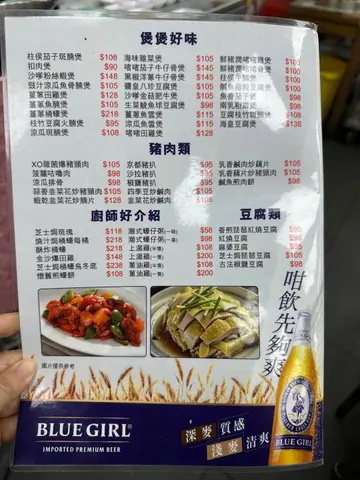 煲煲好味
柱侯茄子斑腩煲 $108
扣肉煲 $90
沙嗲粉絲蝦煲 $148
豉汁涼瓜魚骨腩煲 $105
薑蔥田雞煲 $128
薑蔥魚腩煲 $105
薑蔥桶蠔煲 $218
枝竹豆腐火腩煲 $95
涼瓜斑腩煲 $108
海味雜菜煲 $105
啫啫茄子牛仔骨煲 $145
黑椒洋蔥牛仔骨煲 $145
鐵皇八珍豆腐煲 $105
沙嗲金菇肥牛煲 $105
生菜鯪魚球豆腐煲 $98
薑蔥魚雲煲 $115
涼瓜魚雲煲 $115
啫啫田雞煲 $128
鮮豬潤啫啫雞煲
鮮豬潤啫啫骨煲
柱侯牛腩煲
鹹魚雞粒豆腐煲
魚香茄子煲
南乳粗齋煲 $98
豆腐枝竹斑腩煲 $108
海皇豆腐煲 $138
豬肉類
XO醬菌爆豬頸肉 $105
菠蘿咕嚕肉 $98
涼瓜排骨 $98
蒜香韭菜花炒豬頸肉 $105
蝦乾韭菜花炒腩片 $128
京都豬扒 $95
沙拉豬扒 $95
椒鹽豬扒 $95
四季豆炒鹹肉 $105
韭菜花炒鹹肉 $105
乳香鹹肉炒藕片 $105
乳香藕片炒豬頸肉 $105
鹹魚煎肉餅 $98
廚師好介紹
芝士焗斑塊 $118
燒汁焗桶蠔每桶 $218
酥炸桶蠔 $218
金沙爆田雞 $148
芝士焗桶蠔烏冬底 $238
懷舊煎蠔餅 $108
潮式蠔仔粥(一碗) $58
潮式蠔仔粥(一窩) $98
上湯雞(半隻) $100
上湯雞(一隻) $200
蔥油雞(半隻) $100
蔥油雞(一隻) $200
豆腐類
香煎琵琶紅燒豆腐 $98
紅燒豆腐 $98
麻婆豆腐 $95
芝士焗琵琶豆腐 $108
古法椒鹽豆腐 $98
啱飲先夠爽
圖片僅供參考
BLUE GIRL®
IMPORTED PREMIUM BEER
深麥質感
淺麥清爽
BLUE GIRL